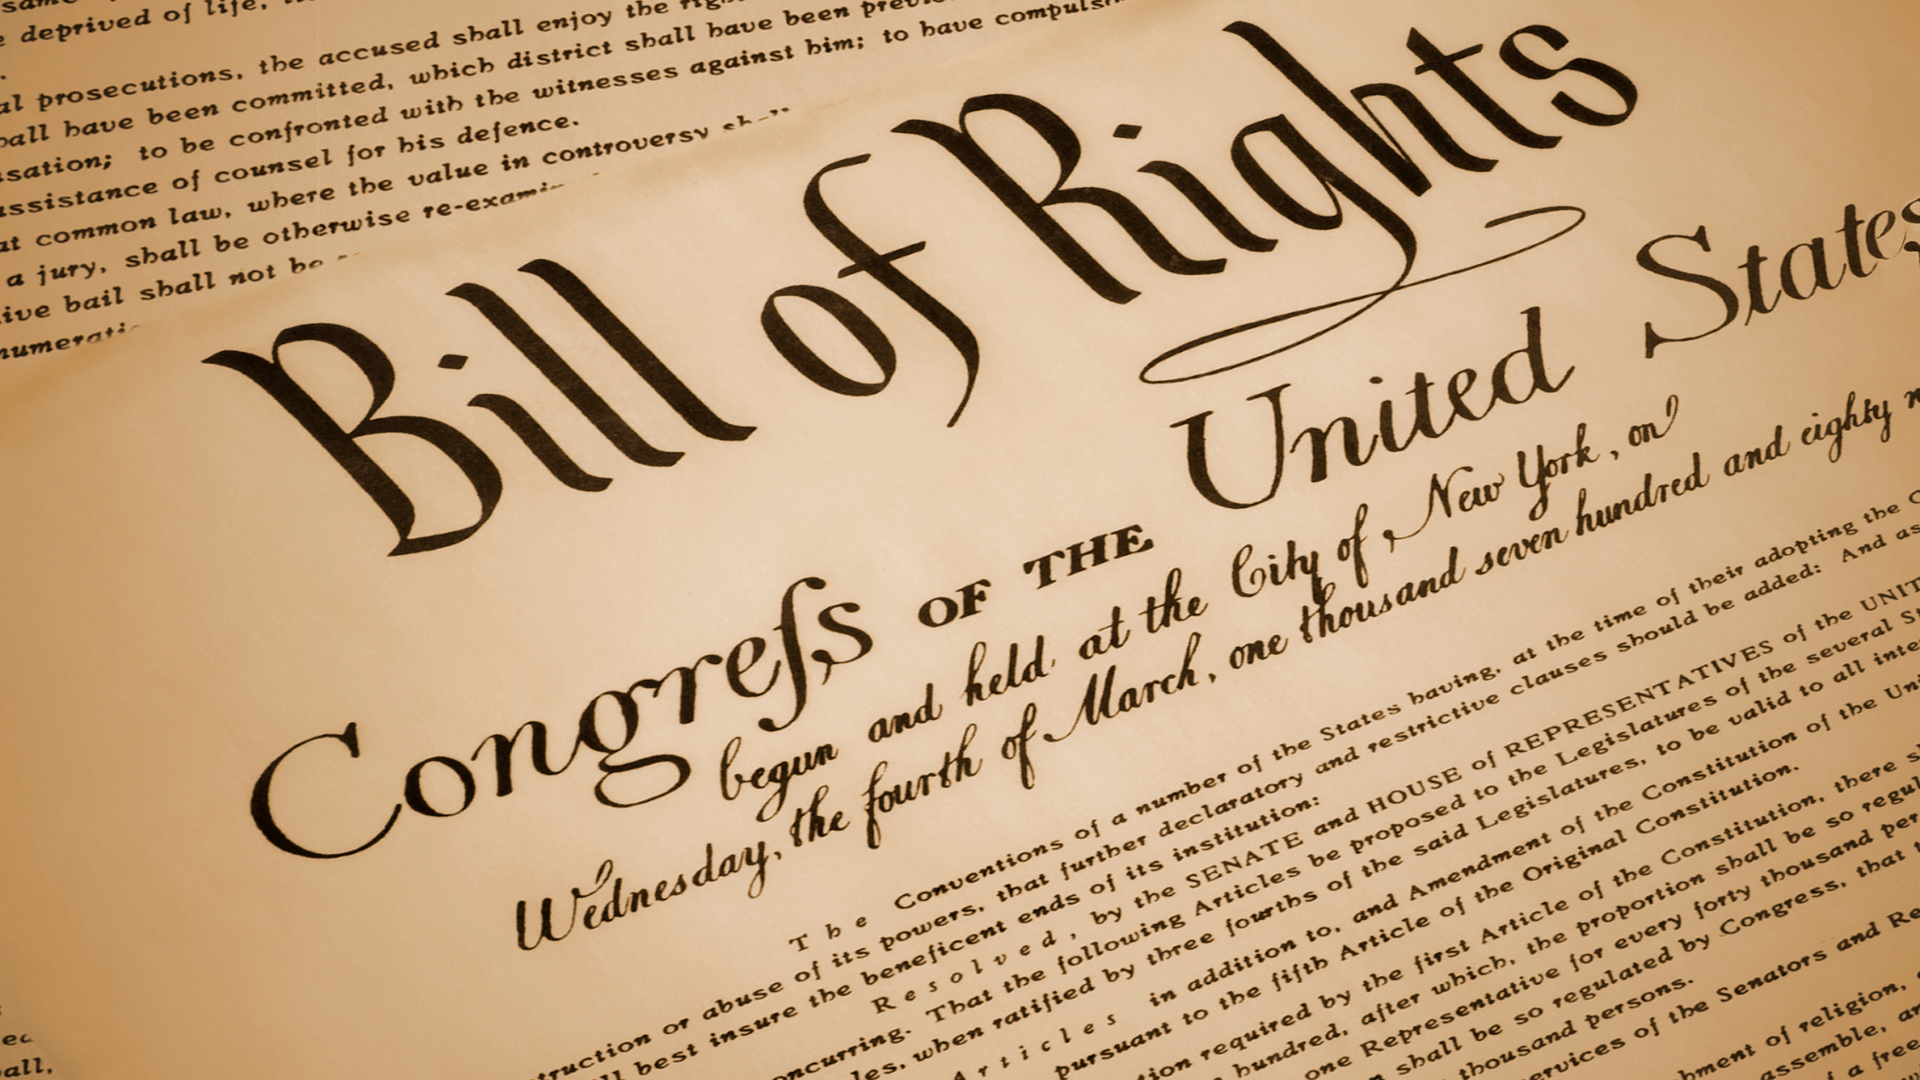 deprived of life,
prosecutions, the accused shall enjoy the
have been committed, which district shall have been
to be confronted with the witnesses against him; to have
assistance of counsel for his defence.
at common law, where the value in controversy
a jury, shall be otherwise
bail shall not be
Bill of Rights
Congreſs OF THE United States
begun and held at the City of New York, on
Wednesday, the fourth of March, one thousand seven hundred and eighty
The Conventions of a number of the States having, at the time of their adopting the
or abuse of its powers, that further declaratory and restrictive clauses should be added: And as
best insure the beneficent ends of its institution:
Resolved, by the SENATE and HOUSE of REPRESENTATIVES of the
That the following Articles be proposed to the Legislatures of the several
when ratified by three fourths of the said Legislatures, to be valid to all
Articles in addition to, and Amendment of the Constitution of the
pursuant to the fifth Article of the Original Constitution.
required by the first Article of the Constitution, there
hundred, after which, the proportion shall be so
one Representative for every forty thousand
shall be so regulated by Congress, that
thousand persons.
of the Senators and
of religion,
assemble,
a free